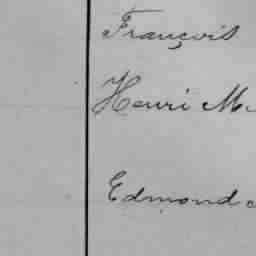 François
Henri M
Edmond